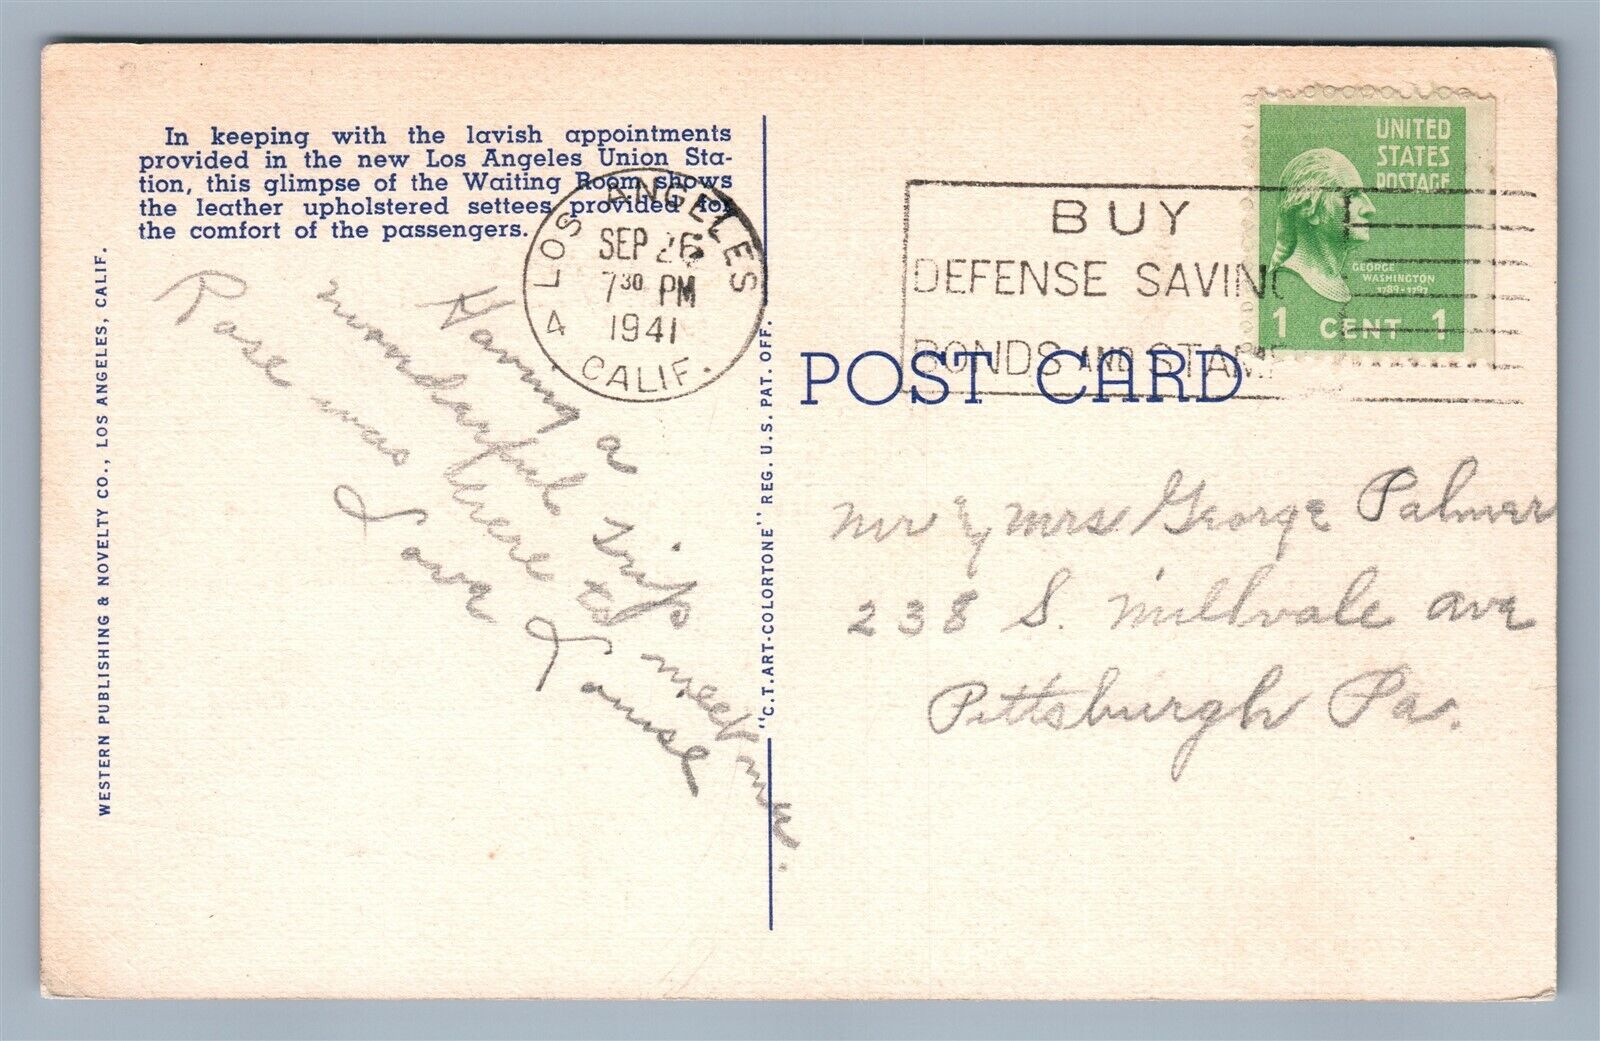 In keeping with the lavish appointments
provided in the new Los Angeles Union Sta-
tion, this glimpse of the Waiting Room shows
the leather upholstered settees provided for
the comfort of the passengers.
WESTERN PUBLISHING & NOVELTY CO., LOS ANGELES, CALIF.
"C.T. ART-COLORTONE" REG. U.S. PAT. OFF.
LOS ANGELES
SEP 26
7 30 PM
1941
4 CALIF.
BUY
DEFENSE SAVING
BONDS AND STAM
UNITED
STATES
POSTAGE
GEORGE
WASHINGTON
1789-1797
1 CENT 1
POST CARD
Having a
wonderful trip
Rose was here to meet me.
Love Louise
Mr & Mrs George Palmer
238 S. Millvale Ave
Pittsburgh Pa.